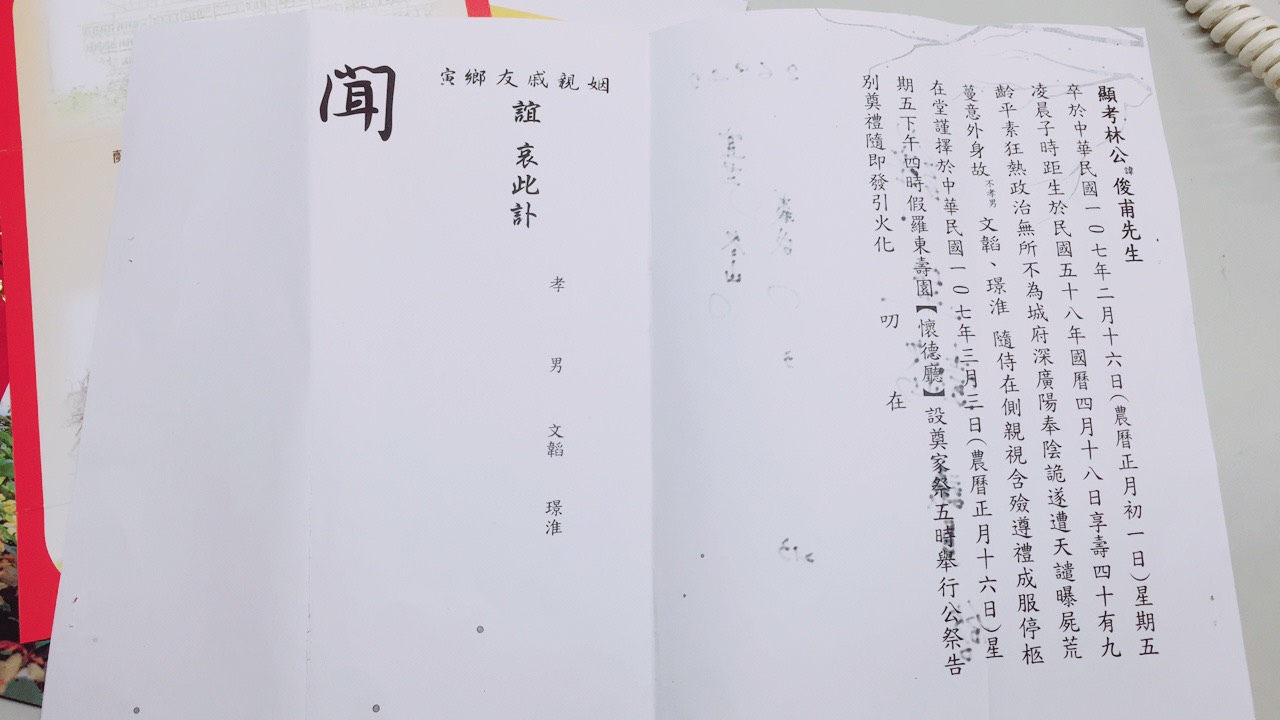 顯考林公諱俊甫先生
卒於中華民國一〇七年二月十六日(農曆正月初一日)星期五
凌晨子時距生於民國五十八年國曆四月十八日享壽四十有九
齡平素狂熱政治無所不為城府深廣陽奉陰詭遂遭天譴曝屍荒
蔓意外身故不孝男文韜、璟淮隨侍在側親視含殮遵禮成服停柩
在堂謹擇於中華民國一〇七年三月三日(農曆正月十六日)星
期五下午四時假羅東壽園【懷德廳】設奠家祭五時舉行公祭告
別奠禮隨即發引火化
叨在
姻親戚友鄉寅
誼哀此訃
孝男文韜璟淮
聞